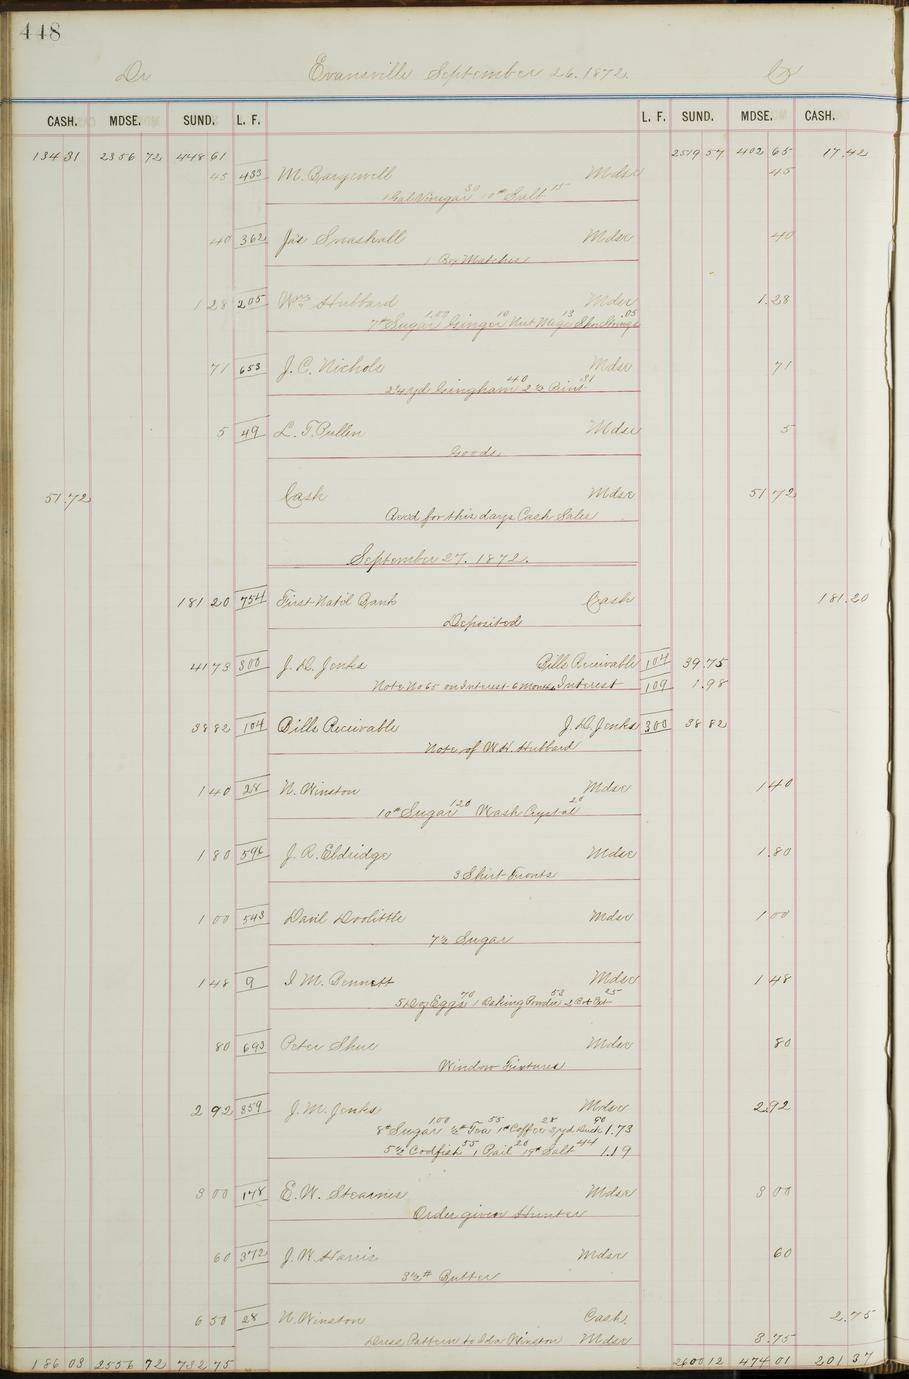 448
Dr Evansville September 26. 1872. Cr
CASH. MDSE. SUND. L. F. L. F. SUND. MDSE. CASH.
134 31 2356 72 448 61 2519 57 402 65 17.42
45 433 M. Bargewell Mdse 45
1 Gal Vinegar 30 10# Salt 15
40 362 Jas Snashall Mdse 40
1 Box Matches
1 28 205 Wm Hubbard Mdse 1.28
7# Sugar 1.00 Ginger 10 Nut Megs 13 Shoe Strings .05
71 653 J. C. Nichols Mdse 71
2¼ yd Gingham 40 2½ Print 31
5 49 L. T. Pullen Mdse 5
Goods
51.72 Cash Mdse 51 72
Recd for this days Cash Sales
September 27. 1872.
181 20 754 First Nat'l Bank Cash 181.20
Deposited
41 73 300 J. D. Jenks Bills Receivable 104 39.75
Note No 65 on Interest 6 Months Interest 109 1.98
38 82 104 Bills Receivable J. D. Jenks 300 38 82
Note of W. H. Hubbard
1 40 28 N. Winston Mdse 1 40
10# Sugar 1 20 Wash Crystal 20
1 80 596 J. R. Eldridge Mdse 1.80
3 Shirt Fronts
1 00 543 David Doolittle Mdse 1 00
7½ Sugar
1 48 9 I M. Bennett Mdse 1 48
5 Doz Eggs 70 1 Baking Powder 53 25
80 693 Peter Shue Mdse 80
Window Fixtures
2 92 359 J. M. Jenks Mdse 2.92
8# Sugar 100 ½# Tea 55 1# Coffee 28 3 yd 90 1.73
5½ Codfish 55 1 Pail 20 19# Salt 44 1.19
3 00 178 E. W. Stearnes Mdse 3 00
Order given Hunter
60 372 J. W. Harris Mdse 60
3½# Butter
6 50 28 N. Winston Cash 2.75
Dress Pattern to Ida Winston Mdse 3.75
186 03 2556 72 732 75 2600 12 474 01 201 37